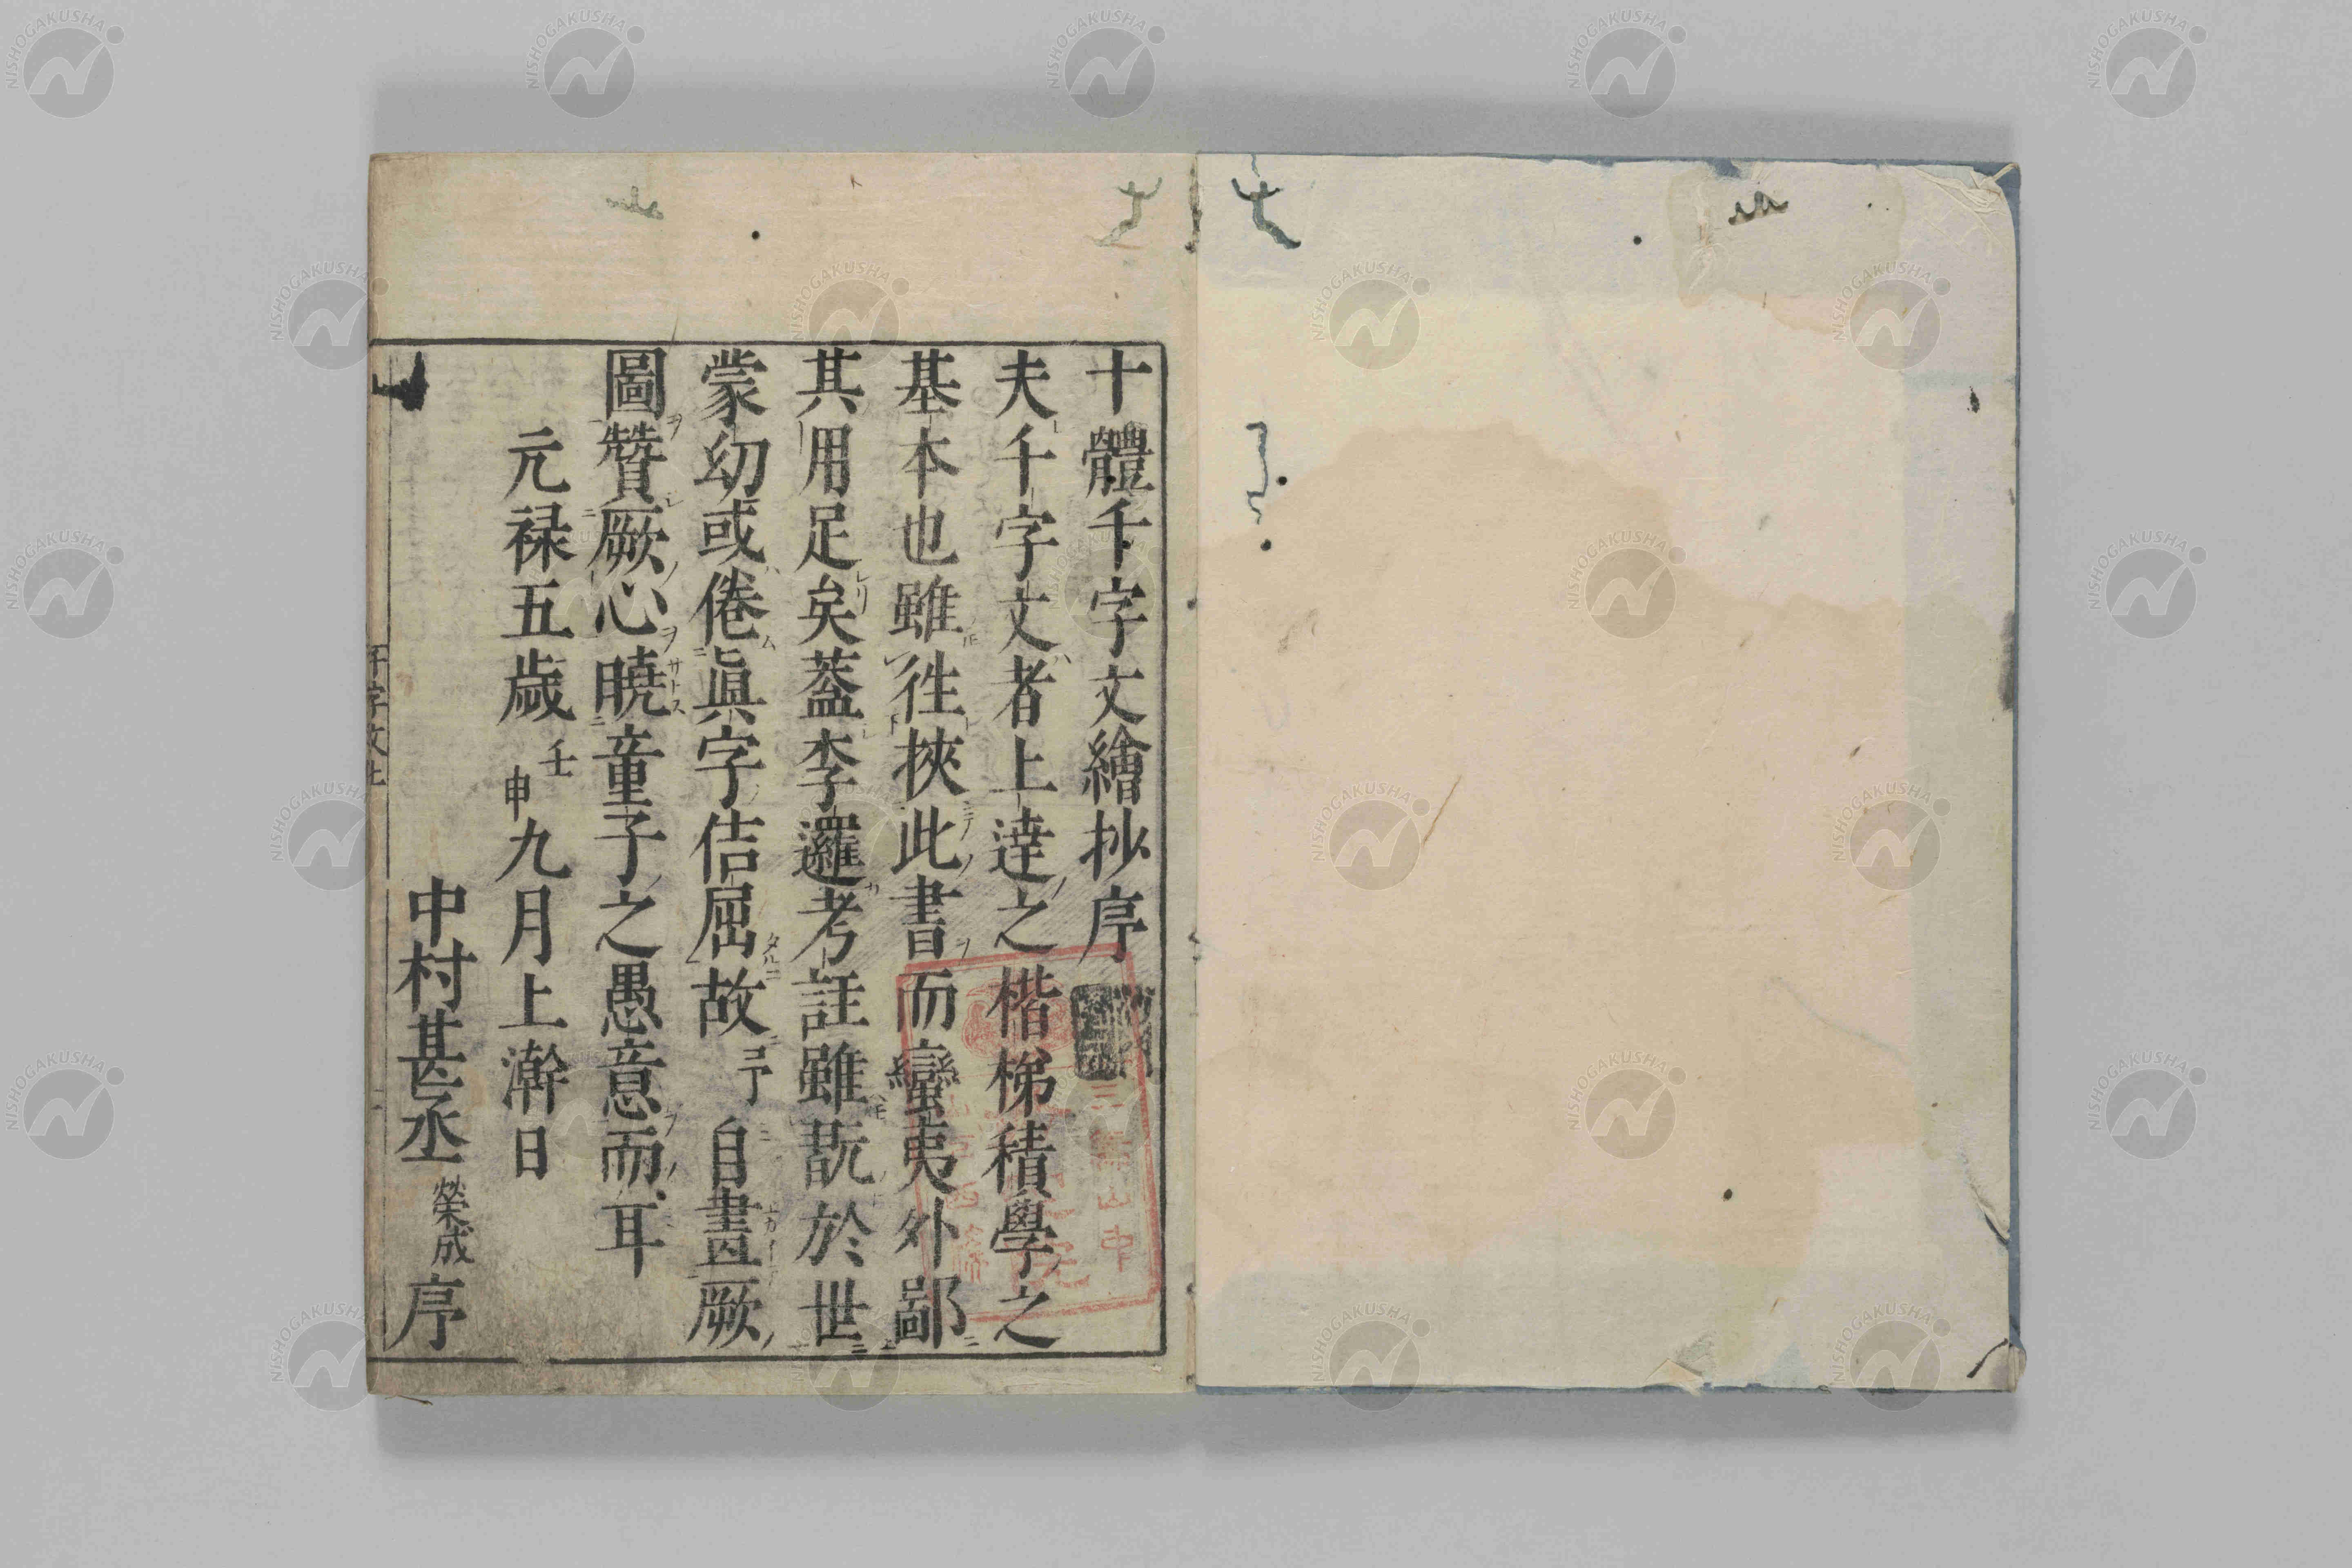 十體千字文繪抄序
夫千字文者上達之楷梯積學之
基本也雖徃挾此書而蠻夷外鄙
其用足矣蓋李邏考註雖翫於世
蒙幼或倦眞字佶屈故予自畫厥
圖贊厥心曉童子之愚意而耳
元禄五歳壬申九月上澣日
中村甚丞榮成序
千字文上
NISHOGAKUSHA